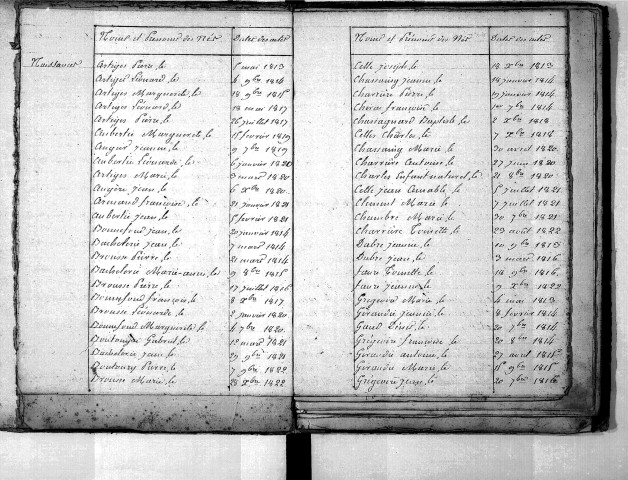 Noms et Prénoms des Nés Dates des actes
Naissances
Artiges Pierre, le 1 mai 1813
Artiges Léonard, le 4 9bre 1814
Artiges Marguerite, le 18 9bre 1815
Artiges Léonard, le 18 mai 1817
Artiges Pierre, le 26 juillet 1817
Aubertie Marguerite, le 15 février 1819
Augur jeanne, le 9 7bre 1819
Aubertie Léonarde, le 6 janvier 1820
Artiges Marie, le 3 mars 1820
Augère jean, le 6 xbre 1820
Armand françoise, le 21 janvier 1821
Aubertie jean, le 5 février 1821
Bonnefond jean, le 20 janvier 1814
Bachelerie jean, le 7 mars 1814
Brousse Pierre, le 21 mars 1814
Bachelerie Marie-anne, le 9 8bre 1815
Brousse Pierre, le 17 juillet 1816
Bonnefond françois, le 8 xbre 1817
Brousse Léonarde, le 2 janvier 1820
Bonnefond Marguerite, le 4 7bre 1820
Boutouyre Gabriel, le 12 mars 1821
Bachelerie jean, le 29 9bre 1821
Boutoury Pierre, le 7 9bre 1822
Brousse Marie, le 28 xbre 1822
Noms et Prénoms des Nés Dates des actes
Celle joseph, le 18 xbre 1813
Chassaing jeanne, le 18 janvier 1814
Charrière Pierre, le 19 janvier 1814
Chèze françoise, le 10 7bre 1814
Chassagnard Baptiste, le 2 xbre 1818
Celles Charles, le 7 xbre 1818
Chassaing Marie, le 30 avril 1820
Charrière Antoine, le 27 juin 1820
Charles Enfant naturel, le 21 8bre 1820
Celle jean Amable, le 5 juillet 1821
Clement Marie, le 7 juillet 1821
Chambre Marie, le 30 7bre 1821
Charrière Toinette, le 23 août 1822
Dubre jeanne, le 10 9bre 1813
Dubre jean, le 3 mars 1816
faure Toinette, le 18 9bre 1816
faure jeanne, le 9 xbre 1822
Grégoire Marie, le 4 mai 1813
Giraudie jeanne, le 8 février 1814
Gaud Louis, le 20 7bre 1814
Grégoire françoise, le 20 8bre 1814
Giraudie antoine, le 27 avril 1815
Giraudie Marie, le 15 9bre 1815
Grégoire jean, le 20 7bre 1816